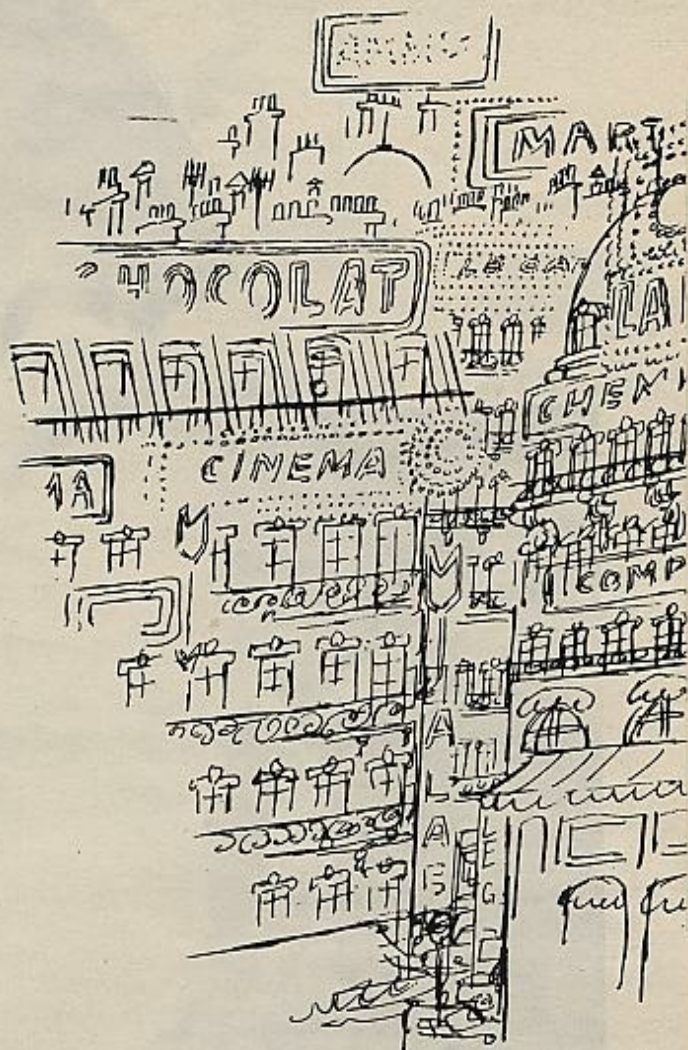 MART
CHOCOLAT
LA
CHEMI
CINEMA
1A
COMP
MALAB
LEG